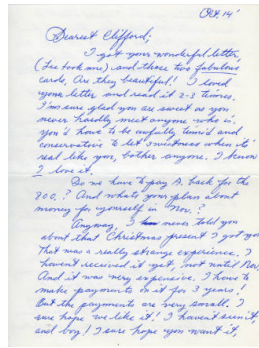 Oct. 14'
Dearest Clifford;
I got your wonderful letter
(Lee took me) and those two fabulous
cards. Are they beautiful! I loved
your letter and read it 2-3 times.
I'm sure glad you are sweet as you
never hardly meet anyone who is.
you'd have to be awfully timid and
conservative to let sweetness when it's
real like yours, bother anyone. I know
I love it.
Do we have to pay A. back for the
800.? And whats your plans about
money for yourself in Nov.?
Anyway, I never told you
about that Christmas present I got you.
That was a really strange experience. I
haven't received it yet, not until Nov.
And it was very expensive. I have to
make payments on it for 3 years!
But the payments are very small. I
sure hope we like it! I haven't seen it,
and boy! I sure hope you want it.